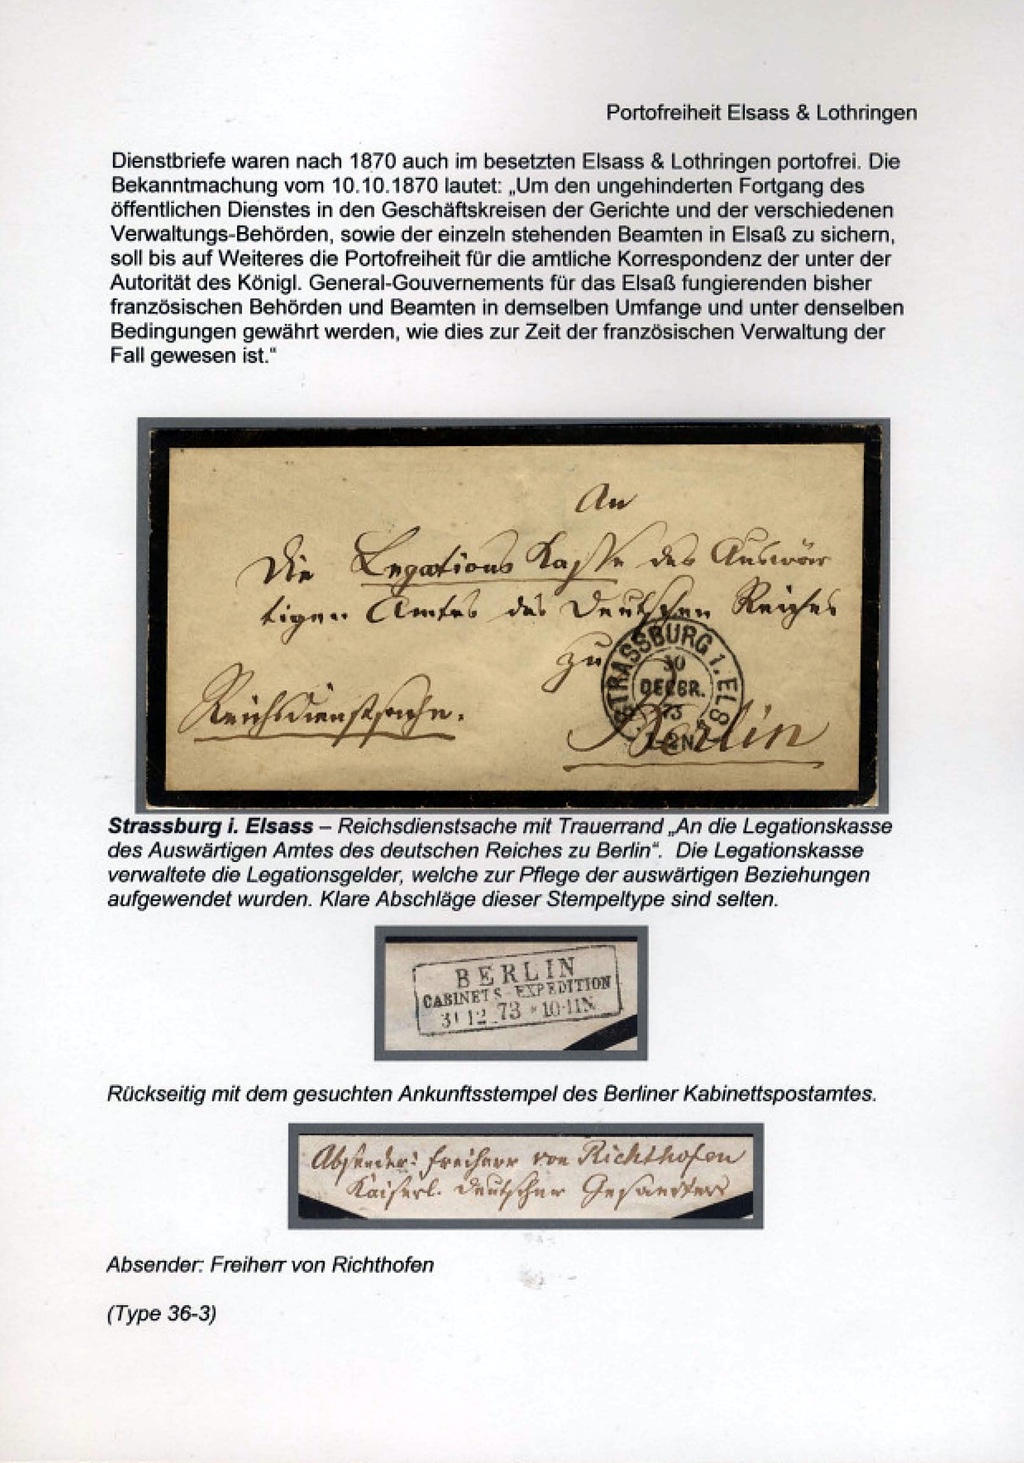 Portofreiheit Elsass & Lothringen
Dienstbriefe waren nach 1870 auch im besetzten Elsass & Lothringen portofrei. Die
Bekanntmachung vom 10.10.1870 lautet: „Um den ungehinderten Fortgang des
öffentlichen Dienstes in den Geschäftskreisen der Gerichte und der verschiedenen
Verwaltungs-Behörden, sowie der einzeln stehenden Beamten in Elsaß zu sichern,
soll bis auf Weiteres die Portofreiheit für die amtliche Korrespondenz der unter der
Autorität des Königl. General-Gouvernements für das Elsaß fungierenden bisher
französischen Behörden und Beamten in demselben Umfange und unter denselben
Bedingungen gewährt werden, wie dies zur Zeit der französischen Verwaltung der
Fall gewesen ist."
An
Die Legations Kasse des Auswär
tigen Amtes des Deutschen Reiches
zu
Berlin
Reichsdienstsache.
STRASSBURG I. ELS
30
DECBR.
73
Strassburg i. Elsass – Reichsdienstsache mit Trauerrand „An die Legationskasse
des Auswärtigen Amtes des deutschen Reiches zu Berlin". Die Legationskasse
verwaltete die Legationsgelder, welche zur Pflege der auswärtigen Beziehungen
aufgewendet wurden. Klare Abschläge dieser Stempeltype sind selten.
BERLIN
CABINETS-EXPEDITION
31 12 73 * 10-11N.
Rückseitig mit dem gesuchten Ankunftsstempel des Berliner Kabinettspostamtes.
Absender: Freiherr von Richthofen
Kaiserl. Deutscher Gesandter
Absender: Freiherr von Richthofen
(Type 36-3)